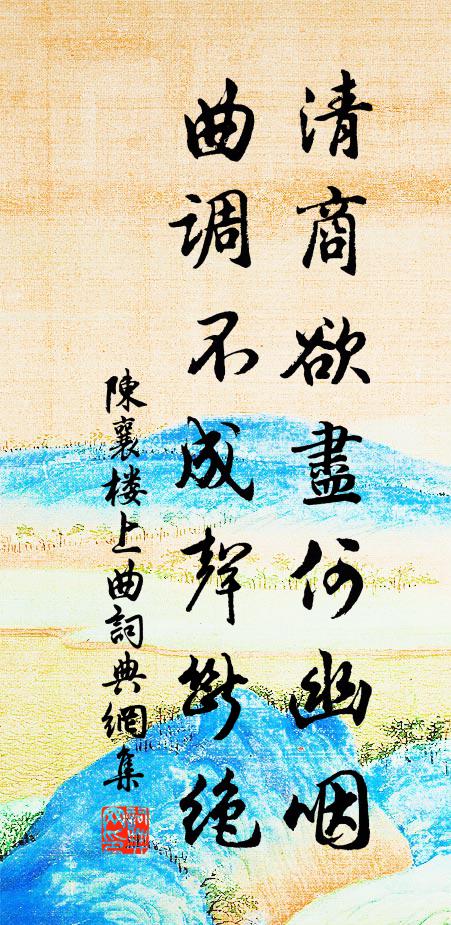 清商欲盡何幽咽
曲調不成聲斷絕
陳襄楼上曲詞典網集